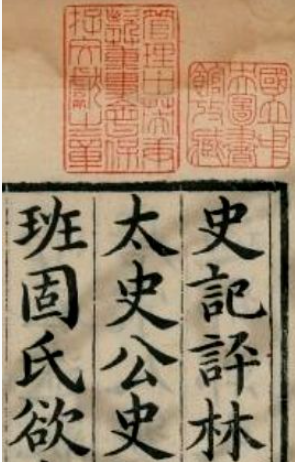 國立中
央圖書
館收藏
管理中英庚
款董事會保
存文獻之章
史記評林
太史公史
班固氏欲